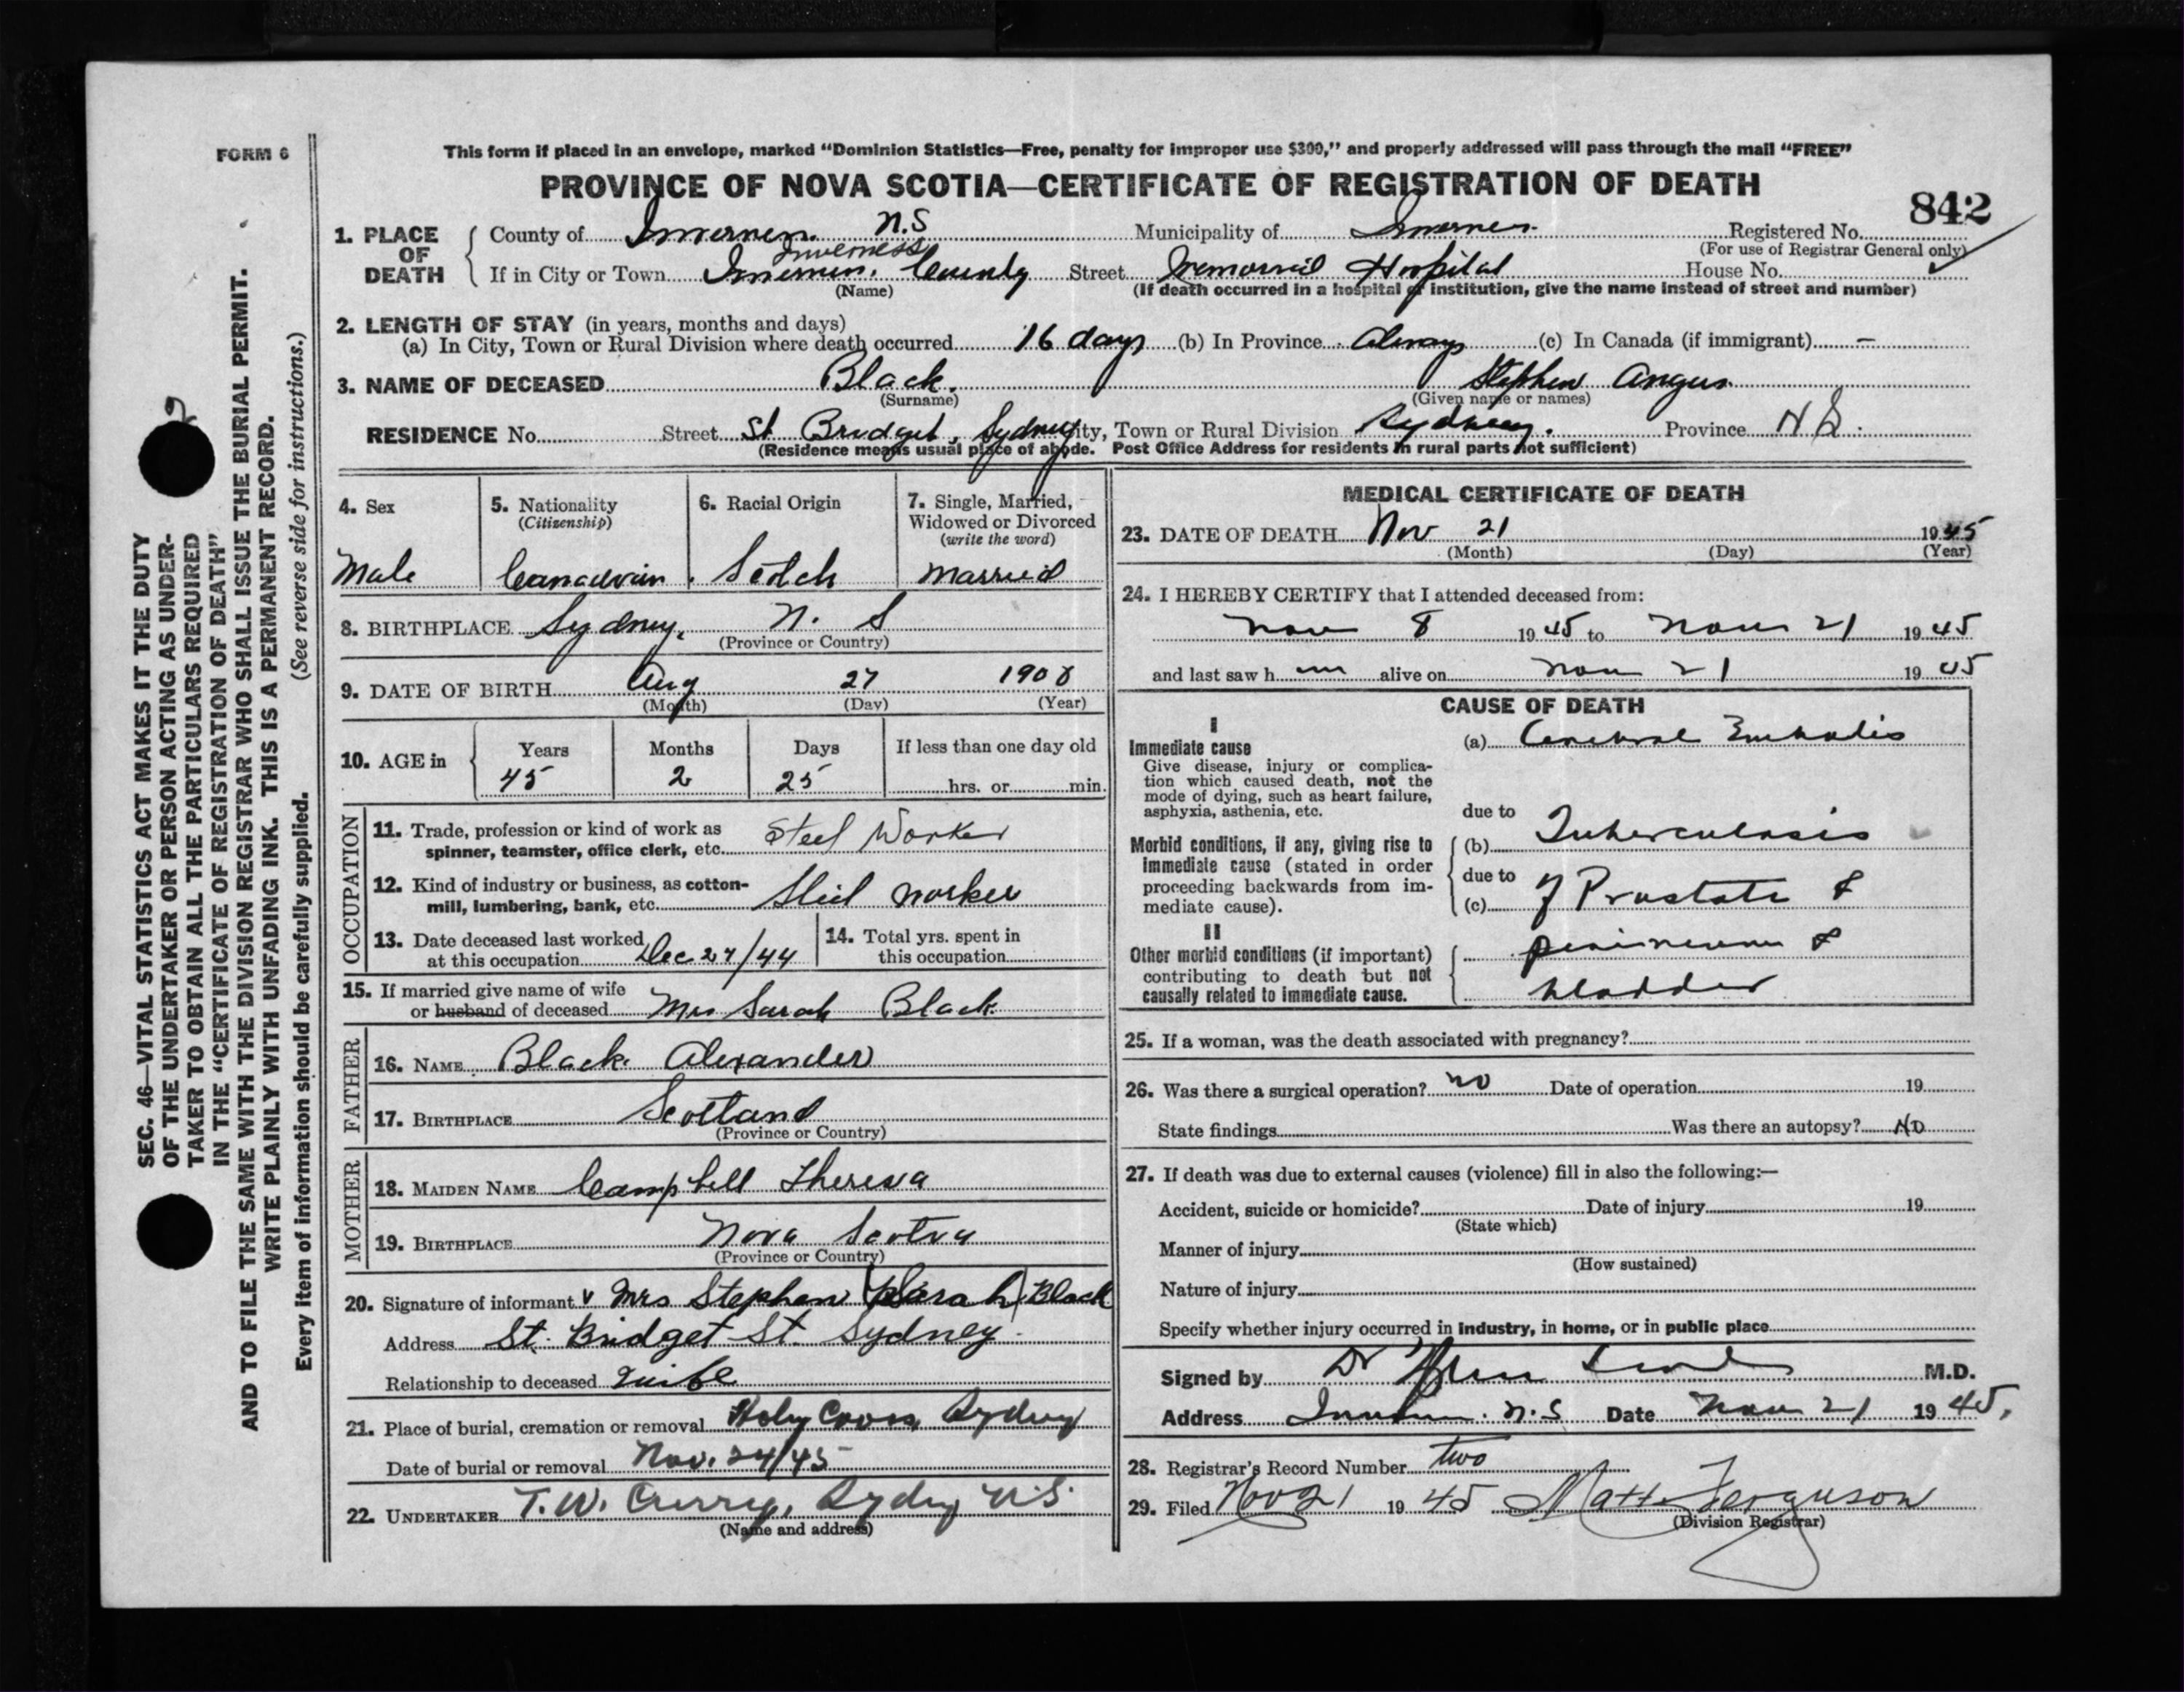 FORM 6
This form if placed in an envelope, marked “Dominion Statistics—Free, penalty for improper use $300,” and properly addressed will pass through the mail “FREE”
PROVINCE OF NOVA SCOTIA—CERTIFICATE OF REGISTRATION OF DEATH
842
1. PLACE OF DEATH
County of Inverness N.S Municipality of Inverness Registered No.
(For use of Registrar General only)
Inverness
If in City or Town Inverness, County Street Memorial Hospital House No.
(Name) (If death occurred in a hospital or institution, give the name instead of street and number)
2. LENGTH OF STAY (in years, months and days)
(a) In City, Town or Rural Division where death occurred 16 days (b) In Province Always (c) In Canada (if immigrant) –
3. NAME OF DECEASED Black. Stephen Angus
(Surname) (Given name or names)
RESIDENCE No. Street St Bridget, Sydney City, Town or Rural Division Sydney. Province N S.
(Residence means usual place of abode. Post Office Address for residents in rural parts not sufficient)
4. Sex Male
5. Nationality (Citizenship) Canadian
6. Racial Origin Scotch
7. Single, Married, Widowed or Divorced (write the word) Married
8. BIRTHPLACE Sydney, N. S
(Province or Country)
9. DATE OF BIRTH Aug 27 1908
(Month) (Day) (Year)
10. AGE in Years Months Days If less than one day old
45 2 25 hrs. or min.
OCCUPATION
11. Trade, profession or kind of work as spinner, teamster, office clerk, etc. Steel Worker
12. Kind of industry or business, as cotton-mill, lumbering, bank, etc. Steel worker
13. Date deceased last worked at this occupation Dec 27/44
14. Total yrs. spent in this occupation
15. If married give name of wife or husband of deceased Mrs Sarah Black
FATHER
16. NAME Black Alexander
17. BIRTHPLACE Scotland
(Province or Country)
MOTHER
18. MAIDEN NAME Campbell Theresa
19. BIRTHPLACE Nova Scotia
(Province or Country)
20. Signature of informant Mrs Stephen (Sarah) Black
Address St. Bridget St. Sydney
Relationship to deceased Wife
21. Place of burial, cremation or removal Holy Cross, Sydney
Date of burial or removal Nov. 24/45
22. UNDERTAKER T. W. Curry, Sydney N.S.
(Name and address)
MEDICAL CERTIFICATE OF DEATH
23. DATE OF DEATH Nov 21 1945
(Month) (Day) (Year)
24. I HEREBY CERTIFY that I attended deceased from:
Nov 8 1945 to Nov 21 1945
and last saw h im alive on Nov 21 1945
CAUSE OF DEATH
I
Immediate cause
Give disease, injury or complica-
tion which caused death, not the
mode of dying, such as heart failure,
asphyxia, asthenia, etc.
(a) Cerebral Embolis
due to
Morbid conditions, if any, giving rise to
immediate cause (stated in order
proceeding backwards from im-
mediate cause).
(b) Tuberculosis
due to
(c) of Prostate &
II
Other morbid conditions (if important)
contributing to death but not
causally related to immediate cause.
perineum &
bladder
25. If a woman, was the death associated with pregnancy?
26. Was there a surgical operation? no Date of operation 19
State findings Was there an autopsy? No
27. If death was due to external causes (violence) fill in also the following:—
Accident, suicide or homicide? Date of injury 19
(State which)
Manner of injury
(How sustained)
Nature of injury
Specify whether injury occurred in industry, in home, or in public place
Signed by Dr M.D.
Address Inverness. N.S Date Nov 21 1945,
28. Registrar's Record Number two
29. Filed Nov 21 1945 Matt Ferguson
(Division Registrar)
SEC. 46—VITAL STATISTICS ACT MAKES IT THE DUTY
OF THE UNDERTAKER OR PERSON ACTING AS UNDER-
TAKER TO OBTAIN ALL THE PARTICULARS REQUIRED
IN THE “CERTIFICATE OF REGISTRATION OF DEATH”
AND TO FILE THE SAME WITH THE DIVISION REGISTRAR WHO SHALL ISSUE THE BURIAL PERMIT.
WRITE PLAINLY WITH UNFADING INK. THIS IS A PERMANENT RECORD.
Every item of information should be carefully supplied. (See reverse side for instructions.)